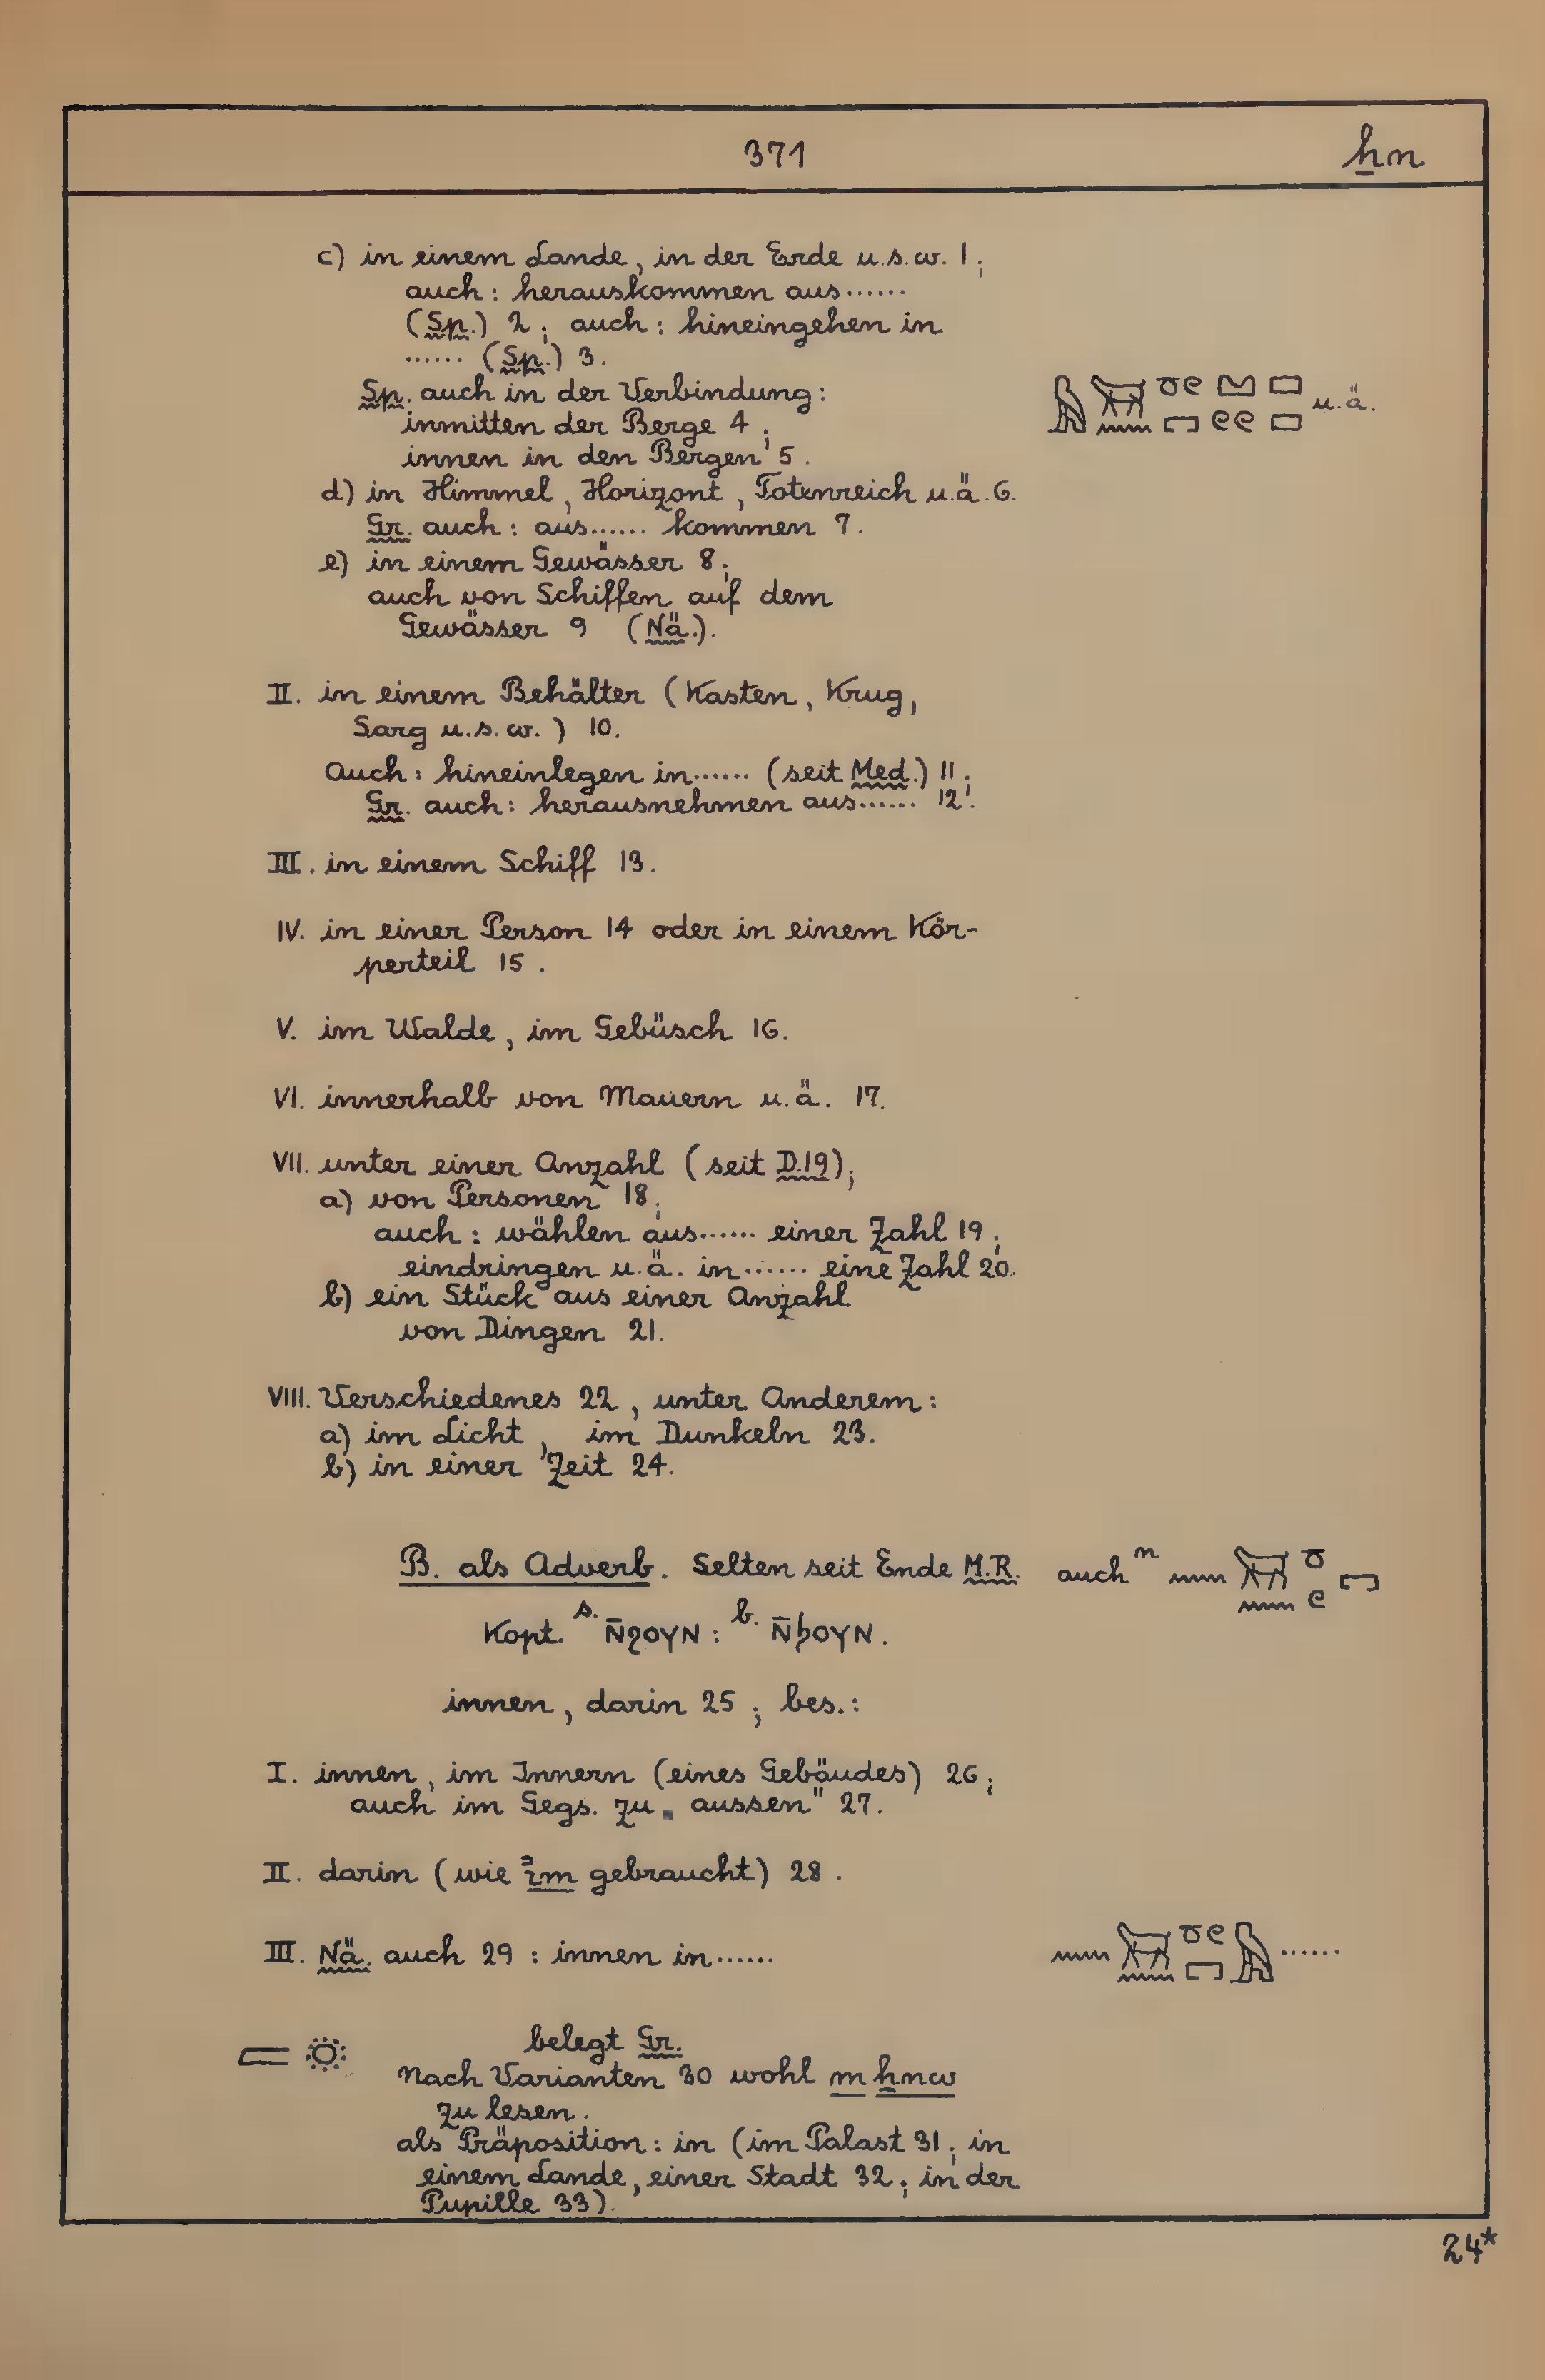 371 ẖn
c) in einem Lande, in der Erde u.s.w. 1;
auch: herauskommen aus······
(Sp.) 2; auch: hineingehen in
······ (Sp.) 3.
Sp. auch in der Verbindung: u.ä.
inmitten der Berge 4;
innen in den Bergen 5.
d) in Himmel, Horizont, Totenreich u.ä. 6.
Gr. auch: aus······ kommen 7.
e) in einem Gewässer 8;
auch von Schiffen auf dem
Gewässer 9 (Nä.).
II. in einem Behälter (Kasten, Krug,
Sarg u.s.w.) 10.
Auch: hineinlegen in······ (seit Med.) 11;
Gr. auch: herausnehmen aus······ 12.
III. in einem Schiff 13.
IV. in einer Person 14 oder in einem Kör-
perteil 15.
V. im Walde, im Gebüsch 16.
VI. innerhalb von Mauern u.ä. 17.
VII. unter einer Anzahl (seit D.19);
a) von Personen 18;
auch: wählen aus······ einer Zahl 19;
eindringen u.ä. in······ eine Zahl 20.
b) ein Stück aus einer Anzahl
von Dingen 21.
VIII. Verschiedenes 22, unter Anderem:
a) im Licht, im Dunkeln 23.
b) in einer Zeit 24.
B. als Adverb. Selten seit Ende M.R. auch n
Kopt. s. N̄ϩOYN: b. N̄ϧOYN.
innen, darin 25; bes.:
I. innen, im Innern (eines Gebäudes) 26;
auch im Gegs. zu „aussen" 27.
II. darin (wie ı͗m gebraucht) 28.
III. Nä. auch 29: innen in······ ······
belegt Gr.
Nach Varianten 30 wohl m ẖnw
zu lesen.
als Präposition: in (im Palast 31; in
einem Lande, einer Stadt 32; in der
Pupille 33).
24*